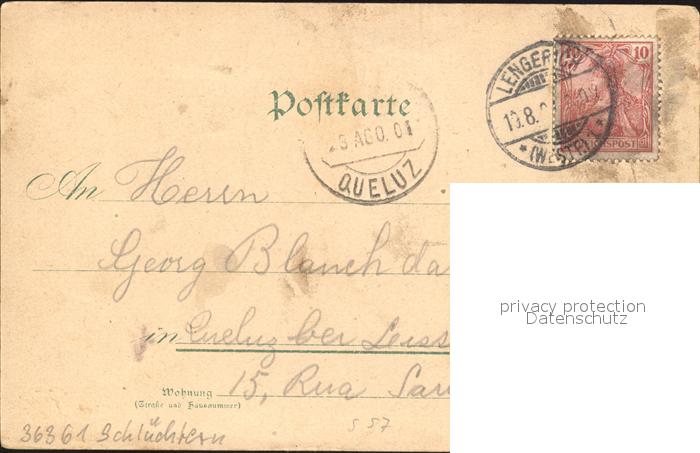 10
REICHSPOST
LENGERICH
13.8.
* (WESTF.) *
Postkarte
23 AGO. 01
QUELUZ
An Herrn
Georg Blanch da
in Queluz bei Liss
15, Rua
Wohnung
(Straße und Hausnummer)
S 57
36361 Schlüchtern
privacy protection
Datenschutz